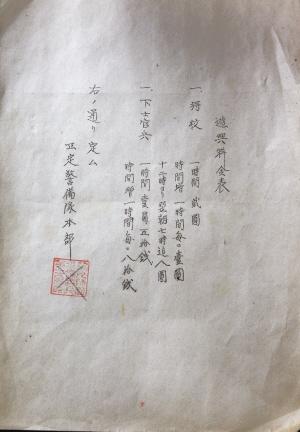 遊興料金表
一、将校 一時間 貳圓
時間増 一時間毎 壹圓
十二時ヨリ翌朝七時迄 八圓
一、下士官兵 一時間 壹圓五拾錢
時間増 一時間毎 八拾錢
右ノ通リ定ム
正定警備隊本部